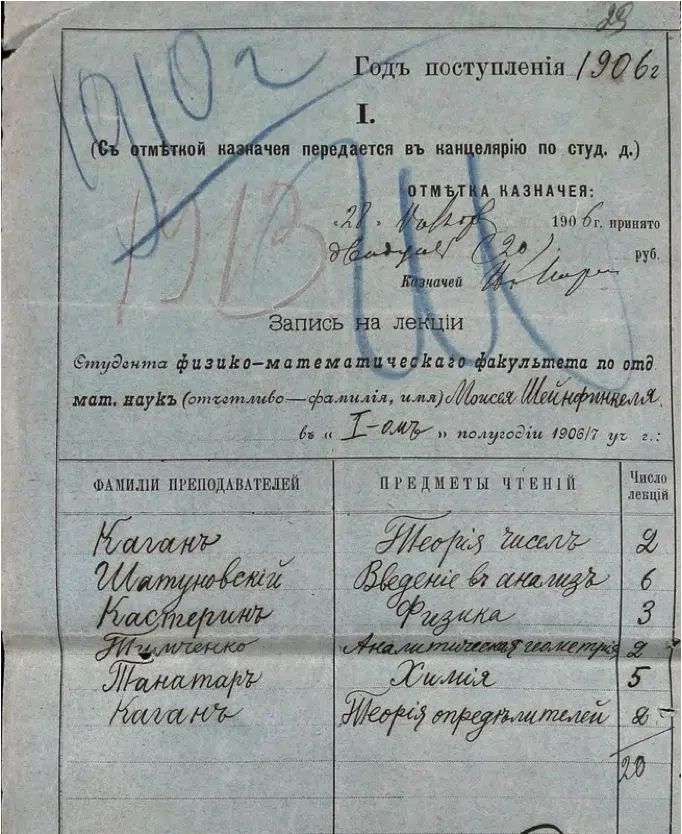 23
1910 г
Годъ поступленія 1906 г
I.
(Съ отмѣткой казначея передается въ канцелярію по студ. д.)
ОТМѢТКА КАЗНАЧЕЯ:
1913
„28„ 1906 г. принято
двадцать (20) руб.
Казначей
Запись на лекціи
Студента физико-математическаго факультета по отд
мат. наукъ (отчетливо—фамилія, имя) Моисея Шейнфинкеля.
въ „ I-омъ „ полугодіи 1906/7 уч г.:
ФАМИЛІИ ПРЕПОДАВАТЕЛЕЙ ПРЕДМЕТЫ ЧТЕНІЙ Число лекцій
Каганъ Теорія чиселъ 2
Шатуновскій Введеніе въ анализъ 6
Кастеринъ Физика 3
Тимченко Аналитическая геометрія 2
Танатаръ Химія 5
Каганъ Теорія опредѣлителей 2
20